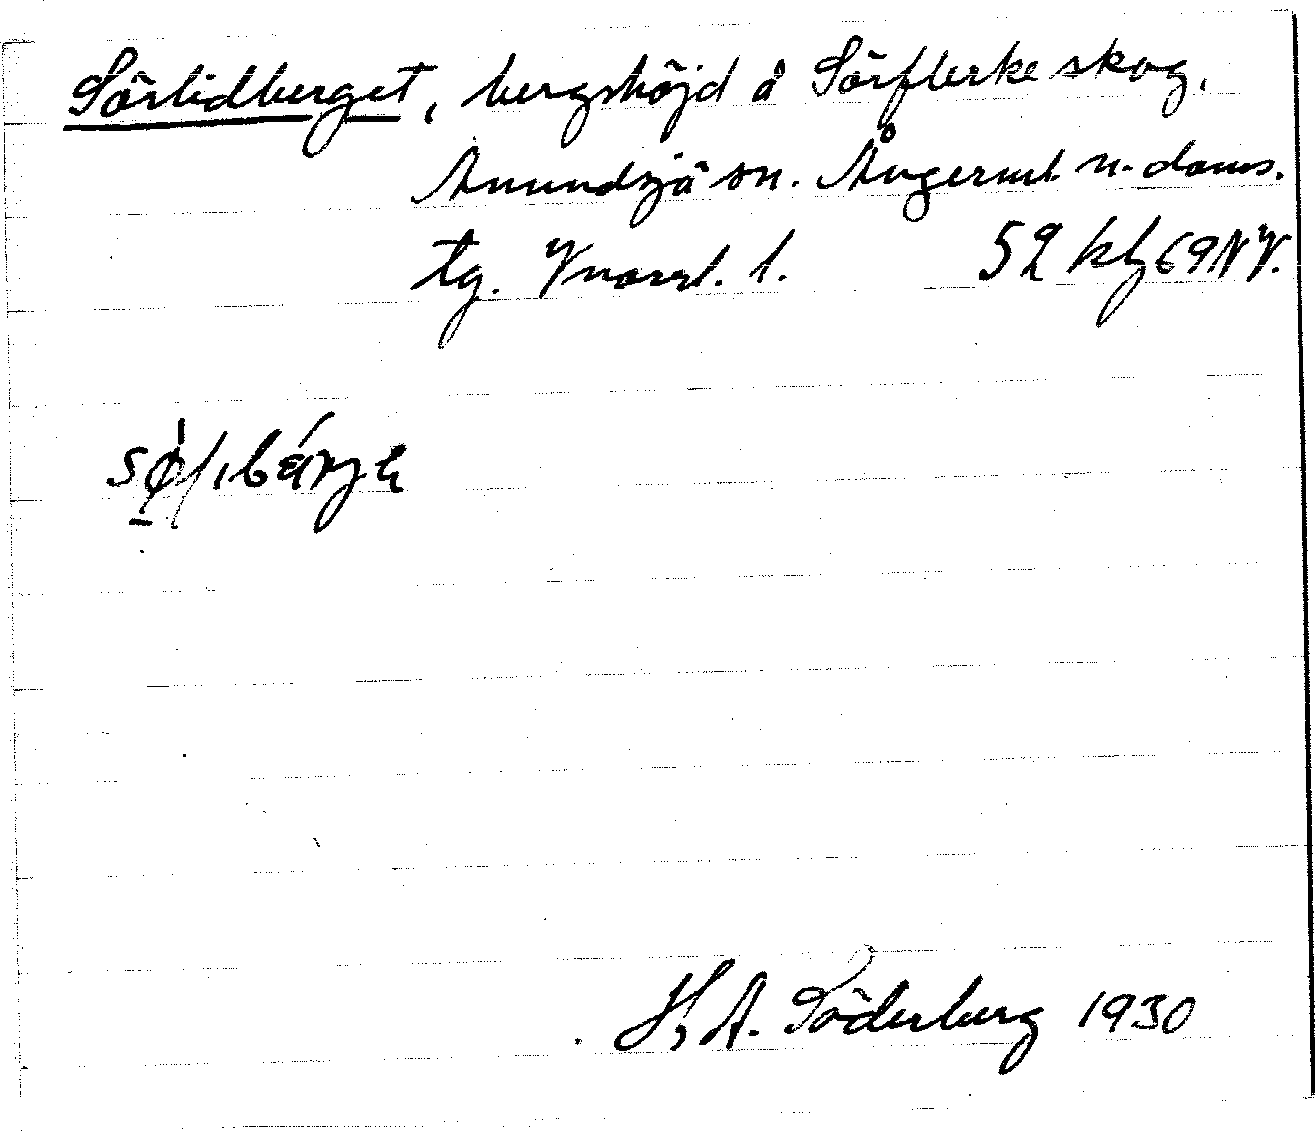 Sörlidberget, bergshöjd å Sörflerke skog,
Anundsjö sn. Ångerml. n. doms.
tg. Vnorrl. l. 52 kbl 69 NV.
H. A. Söderberg 1930